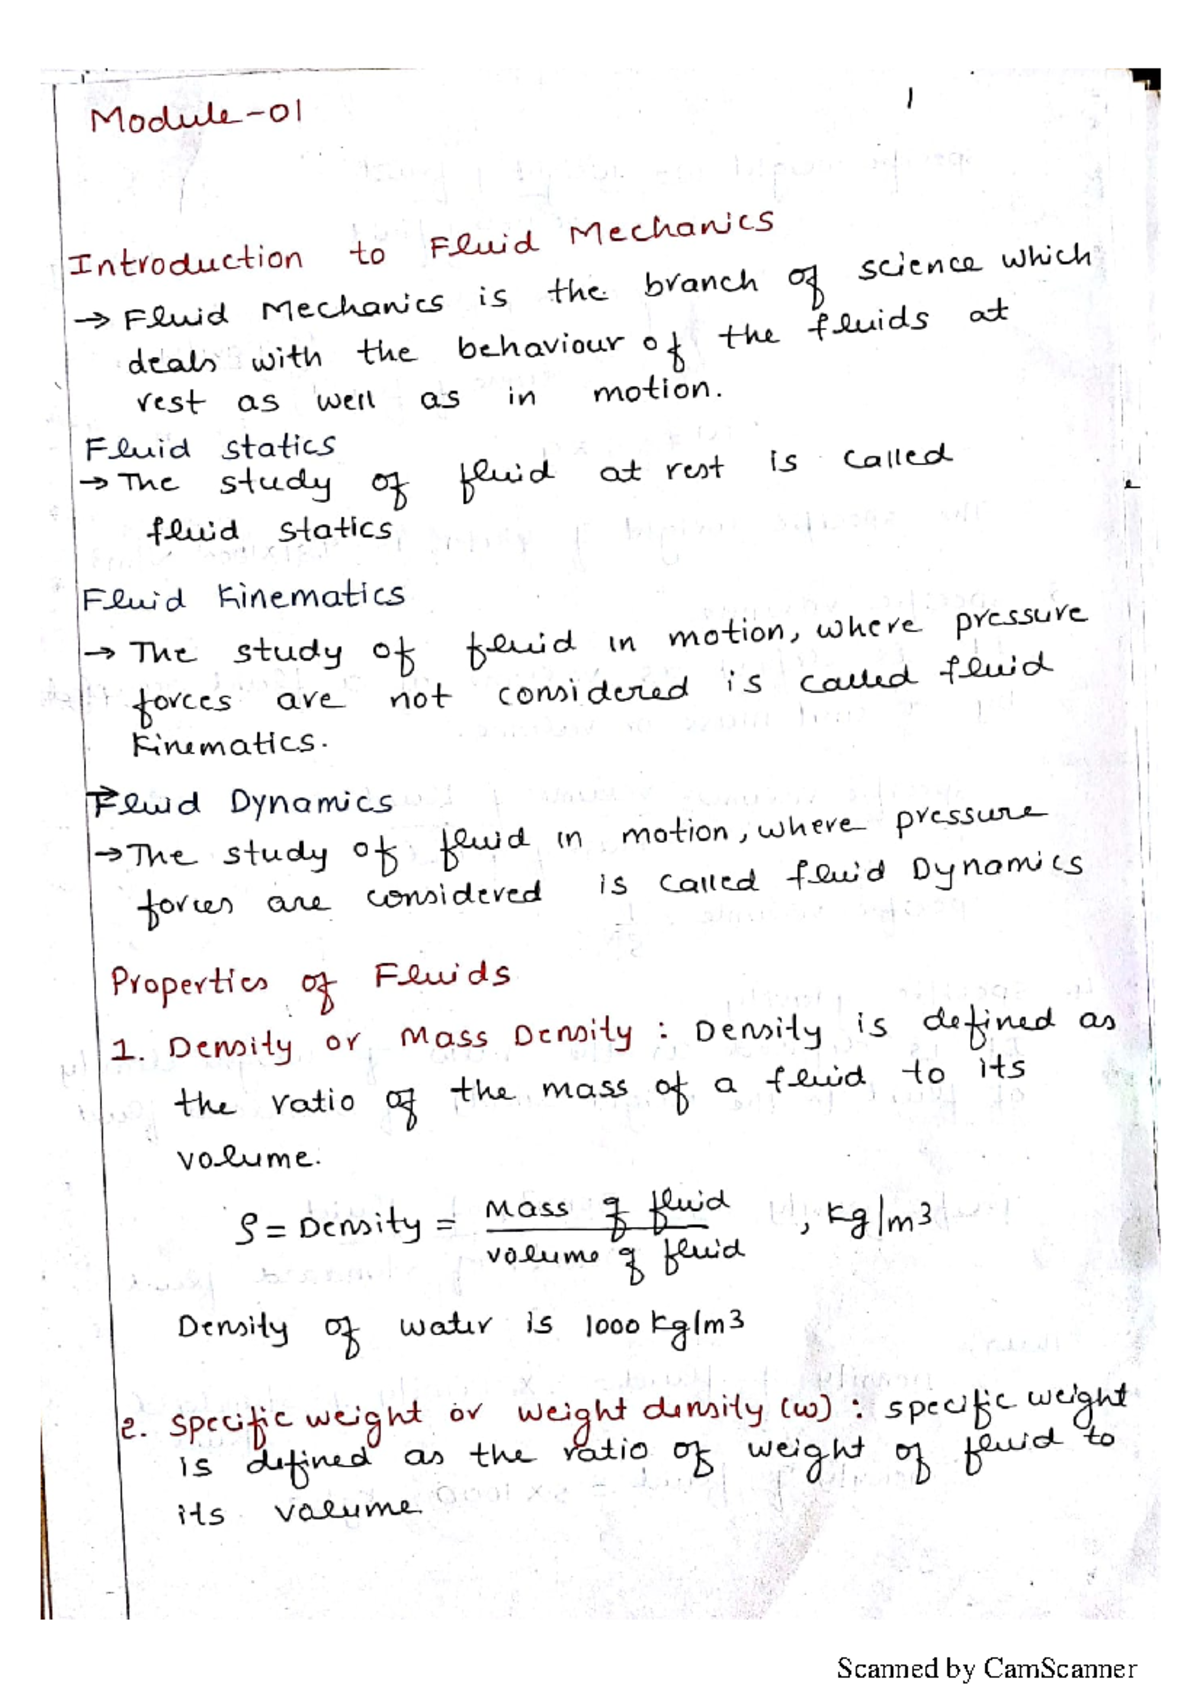 Module-01
1
Introduction to Fluid Mechanics
→ Fluid Mechanics is the branch of science which
deals with the behaviour of the fluids at
rest as well as in motion.
Fluid statics
→ The study of fluid at rest is called
fluid statics
Fluid Kinematics
→ The study of fluid in motion, where pressure
forces are not considered is called fluid
Kinematics.
Fluid Dynamics
→ The study of fluid in motion, where pressure
forces are considered is called fluid Dynamics
Properties of Fluids
1. Density or Mass Density : Density is defined as
the ratio of the mass of a fluid to its
volume.
ρ = Density = Mass of fluid / volume of fluid , kg/m3
Density of water is 1000 kg/m3
2. Specific weight or weight density (w) : specific weight
is defined as the ratio of weight of fluid to
its volume.
Scanned by CamScanner